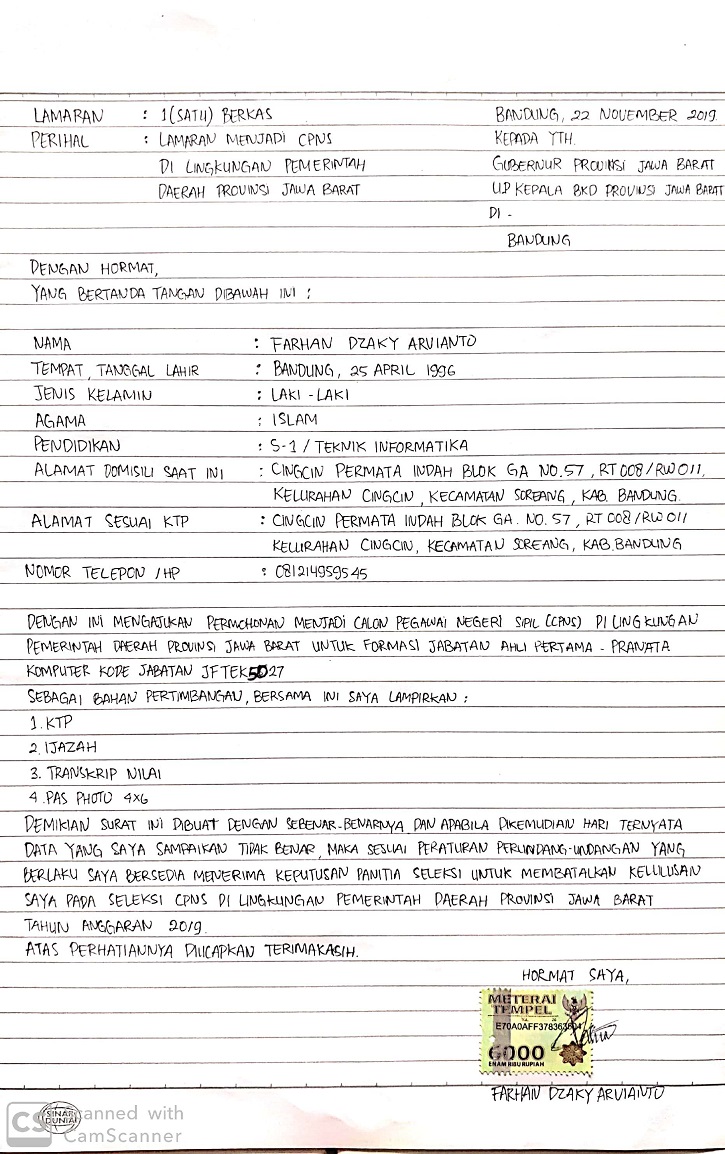 LAMARAN : 1 (SATU) BERKAS
BANDUNG, 22 NOVEMBER 2019.
PERIHAL : LAMARAN MENJADI CPNS
KEPADA YTH.
DI LINGKUNGAN PEMERINTAH
GUBERNUR PROVINSI JAWA BARAT
DAERAH PROVINSI JAWA BARAT
U.P KEPALA BKD PROVINSI JAWA BARAT
DI -
BANDUNG
DENGAN HORMAT,
YANG BERTANDA TANGAN DIBAWAH INI :
NAMA : FARHAN DZAKY ARVIANTO
TEMPAT, TANGGAL LAHIR : BANDUNG, 25 APRIL 1996
JENIS KELAMIN : LAKI - LAKI
AGAMA : ISLAM
PENDIDIKAN : S-1 / TEKNIK INFORMATIKA
ALAMAT DOMISILI SAAT INI : CINGCIN PERMATA INDAH BLOK GA NO.57, RT 008/RW 011,
KELURAHAN CINGCIN, KECAMATAN SOREANG, KAB. BANDUNG.
ALAMAT SESUAI KTP : CINGCIN PERMATA INDAH BLOK GA. NO. 57, RT 008/RW 011
KELURAHAN CINGCIN, KECAMATAN SOREANG, KAB.BANDUNG
NOMOR TELEPON /HP : 081214959545
DENGAN INI MENGAJUKAN PERMOHONAN MENJADI CALON PEGAWAI NEGERI SIPIL (CPNS) DI LINGKUNGAN
PEMERINTAH DAERAH PROVINSI JAWA BARAT UNTUK FORMASI JABATAN AHLI PERTAMA - PRANATA
KOMPUTER KODE JABATAN JFTEK5027
SEBAGAI BAHAN PERTIMBANGAN, BERSAMA INI SAYA LAMPIRKAN :
1. KTP
2. IJAZAH
3. TRANSKRIP NILAI
4. PAS PHOTO 4x6
DEMIKIAN SURAT INI DIBUAT DENGAN SEBENAR-BENARNYA DAN APABILA DIKEMUDIAN HARI TERNYATA
DATA YANG SAYA SAMPAIKAN TIDAK BENAR, MAKA SESUAI PERATURAN PERUNDANG-UNDANGAN YANG
BERLAKU SAYA BERSEDIA MENERIMA KEPUTUSAN PANITIA SELEKSI UNTUK MEMBATALKAN KELULUSAN
SAYA PADA SELEKSI CPNS DI LINGKUNGAN PEMERINTAH DAERAH PROVINSI JAWA BARAT
TAHUN ANGGARAN 2019.
ATAS PERHATIANNYA DIUCAPKAN TERIMAKASIH.
HORMAT SAYA,
METERAI
TEMPEL
6000
ENAM RIBU RUPIAH
FARHAN DZAKY ARVIANTO
SINAR
DUNIA
CS canned with
CamScanner